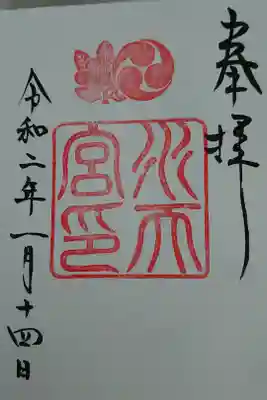 奉拝
水天
宮印
令和二年一月十四日